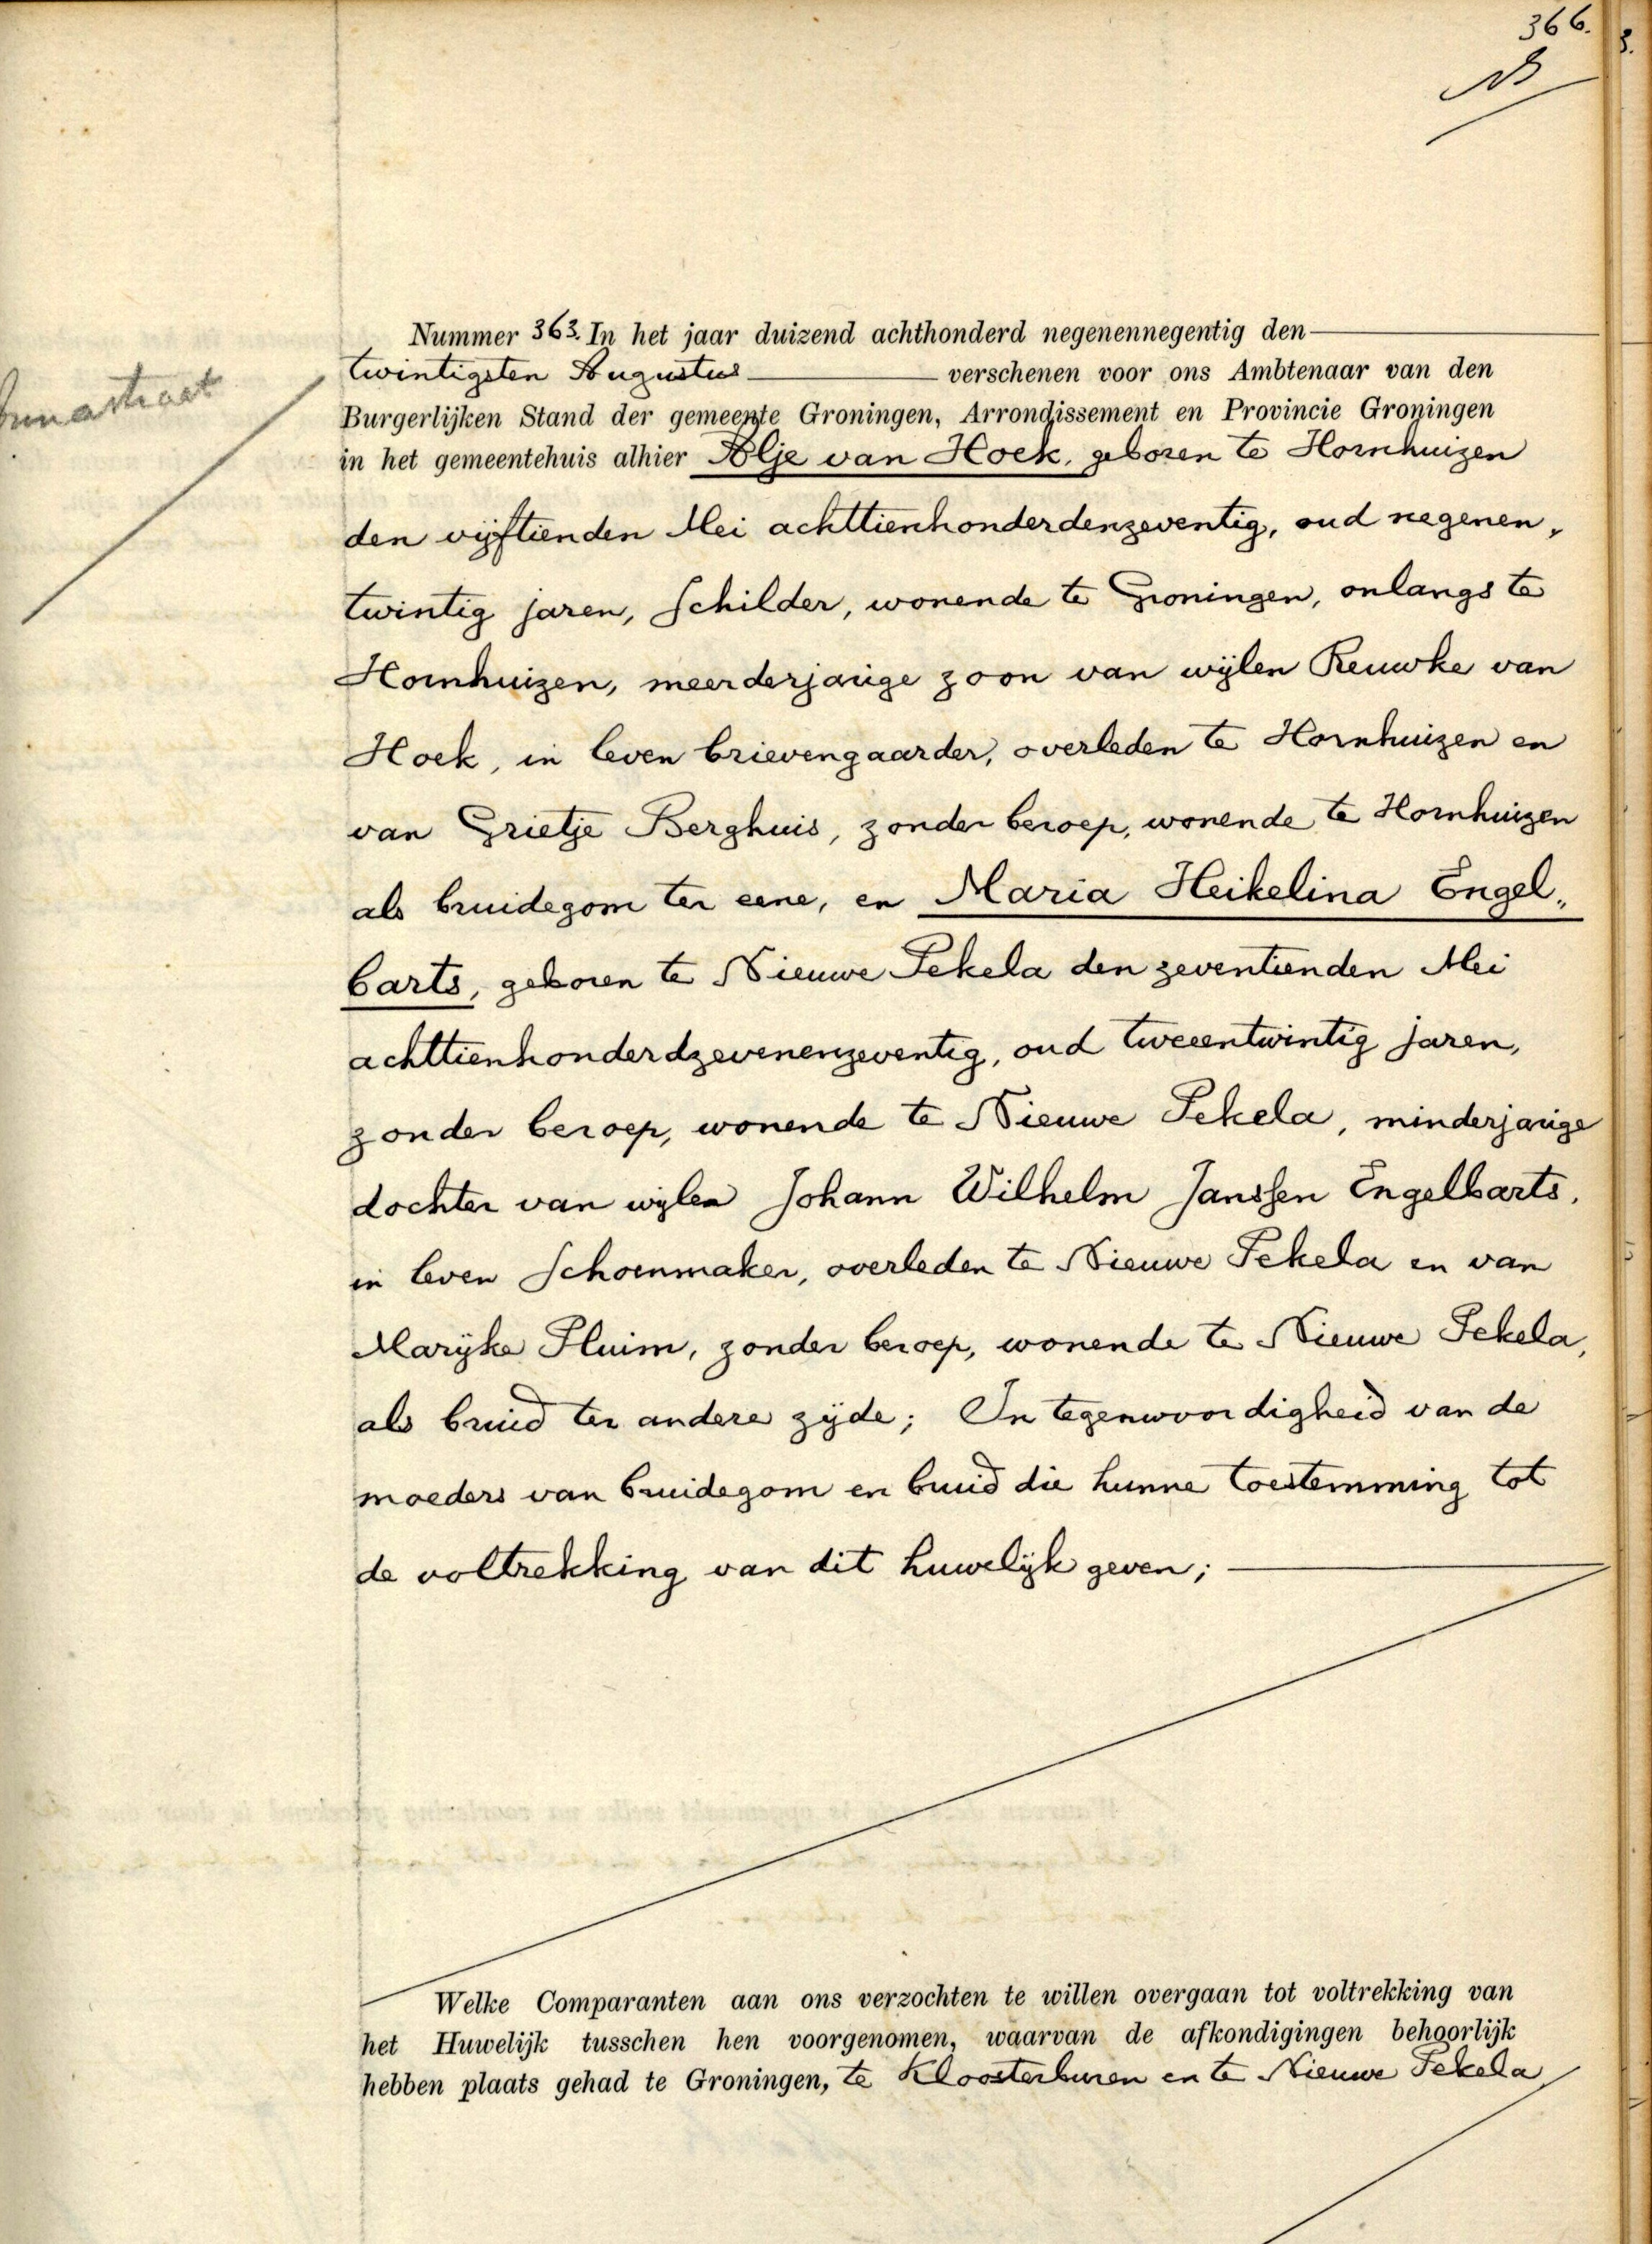 366.
Nummer 363. In het jaar duizend achthonderd negenennegentig den
twintigsten Augustus verschenen voor ons Ambtenaar van den
Burgerlijken Stand der gemeente Groningen, Arrondissement en Provincie Groningen
in het gemeentehuis alhier Alje van Hoek, geboren te Hornhuizen
den vijftienden Mei achttienhonderdenzeventig, oud negenen„
twintig jaren, Schilder, wonende te Groningen, onlangs te
Hornhuizen, meerderjarige zoon van wijlen Reuwke van
Hoek, in leven brievengaarder, overleden te Hornhuizen en
van Grietje Berghuis, zonder beroep, wonende te Hornhuizen
als bruidegom ter eene, en Maria Heikelina Engel„
barts, geboren te Nieuwe Pekela den zeventienden Mei
achttienhonderdzevenenzeventig, oud tweeentwintig jaren,
zonder beroep, wonende te Nieuwe Pekela, minderjarige
dochter van wijlen Johann Wilhelm Janssen Engelbarts,
in leven Schoenmaker, overleden te Nieuwe Pekela en van
Marijke Pluim, zonder beroep, wonende te Nieuwe Pekela,
als bruid ter andere zijde; In tegenwoordigheid van de
moeders van bruidegom en bruid die hunne toestemming tot
de voltrekking van dit huwelijk geven;
Welke Comparanten aan ons verzochten te willen overgaan tot voltrekking van
het Huwelijk tusschen hen voorgenomen, waarvan de afkondigingen behoorlijk
hebben plaats gehad te Groningen, te Kloosterburen en te Nieuwe Pekela